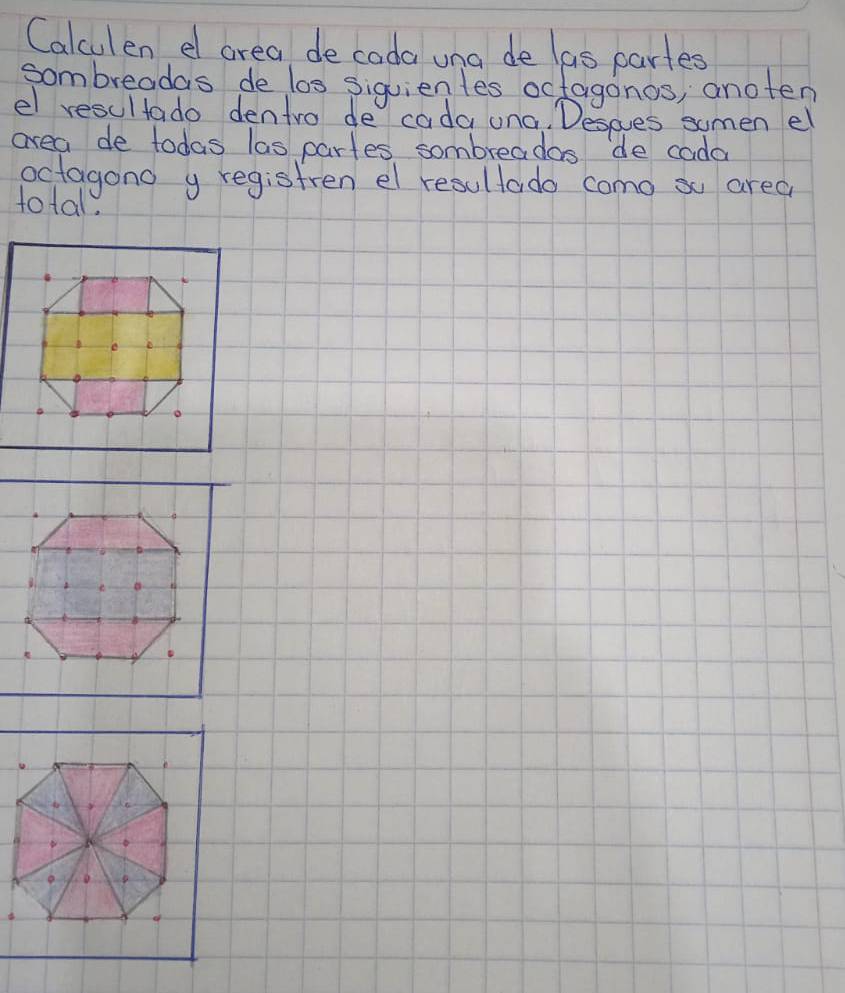 Calculen el area de cada una de las partes
sombreadas de los siguientes octagonos, anoten
el resultado dentro de cada una. Despues sumen el
area de todas las partes sombreadas de cada
octagono y registren el resultado como su area
total.